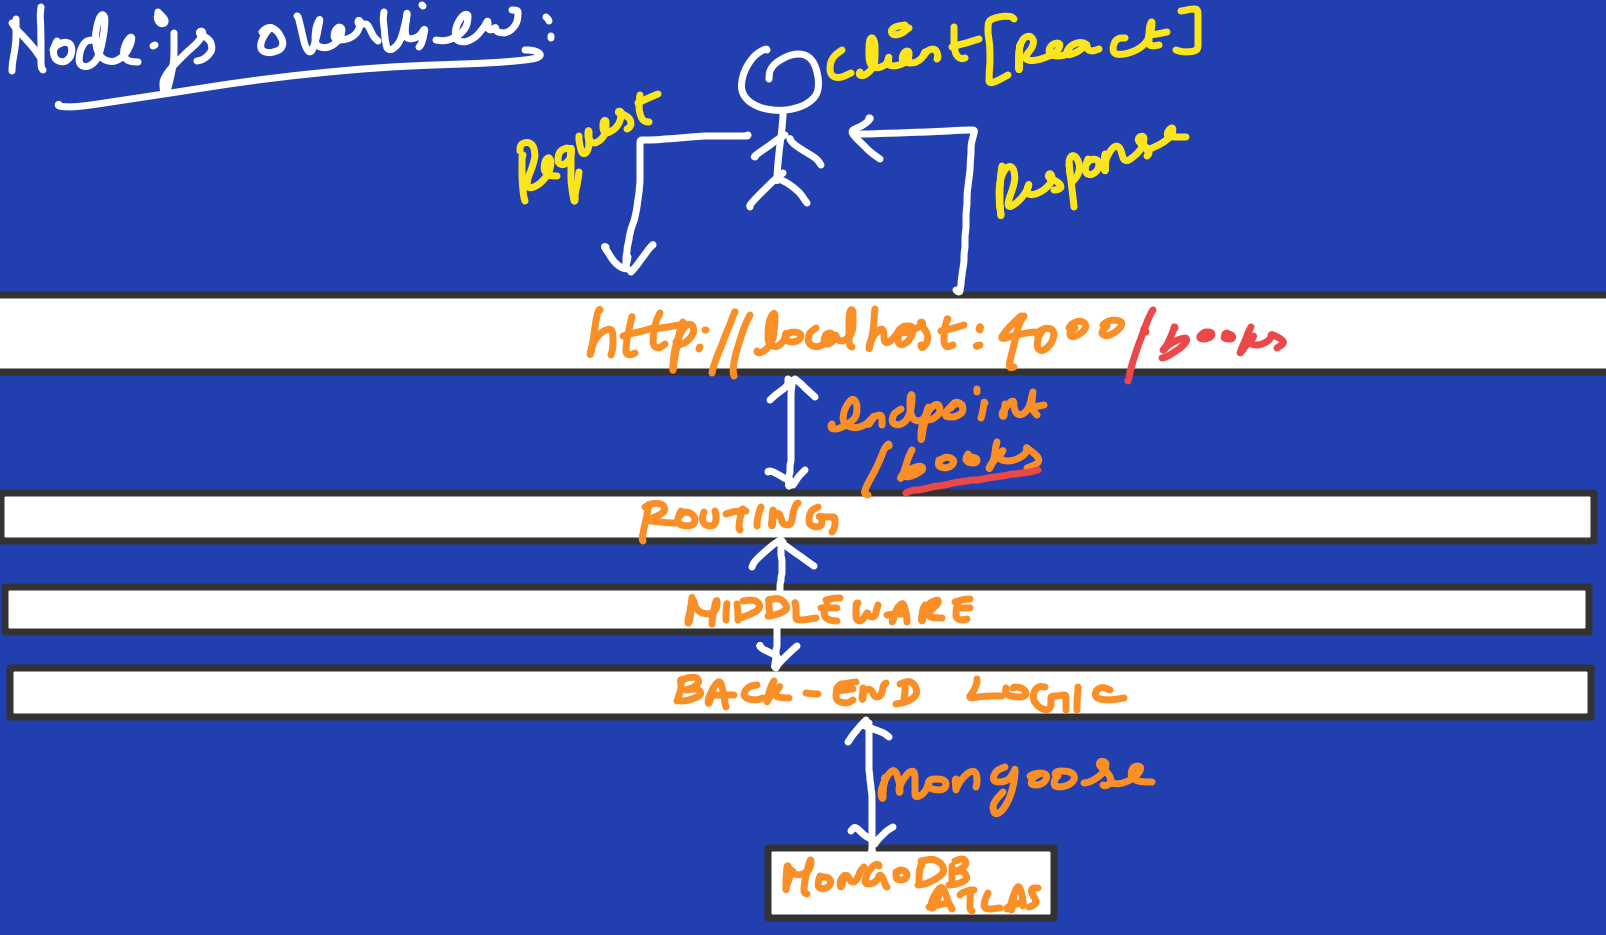 Node.js overview:
client[React]
Request
Response
http://localhost:4000/books
endpoint
/books
ROUTING
MIDDLEWARE
BACK-END LOGIC
mongoose
MONGODB
ATLAS